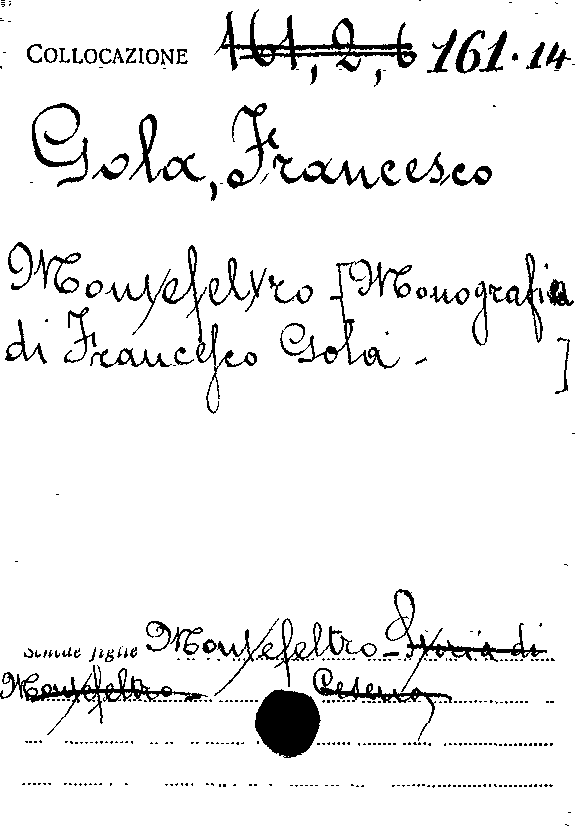 COLLOCAZIONE 161, 2, 6 161.14
Gola, Francesco
Montefeltro - [Monografia
di Francesco Gola - ]
Schede figlie Montefeltro - Storia di
Montefeltro - Cesena